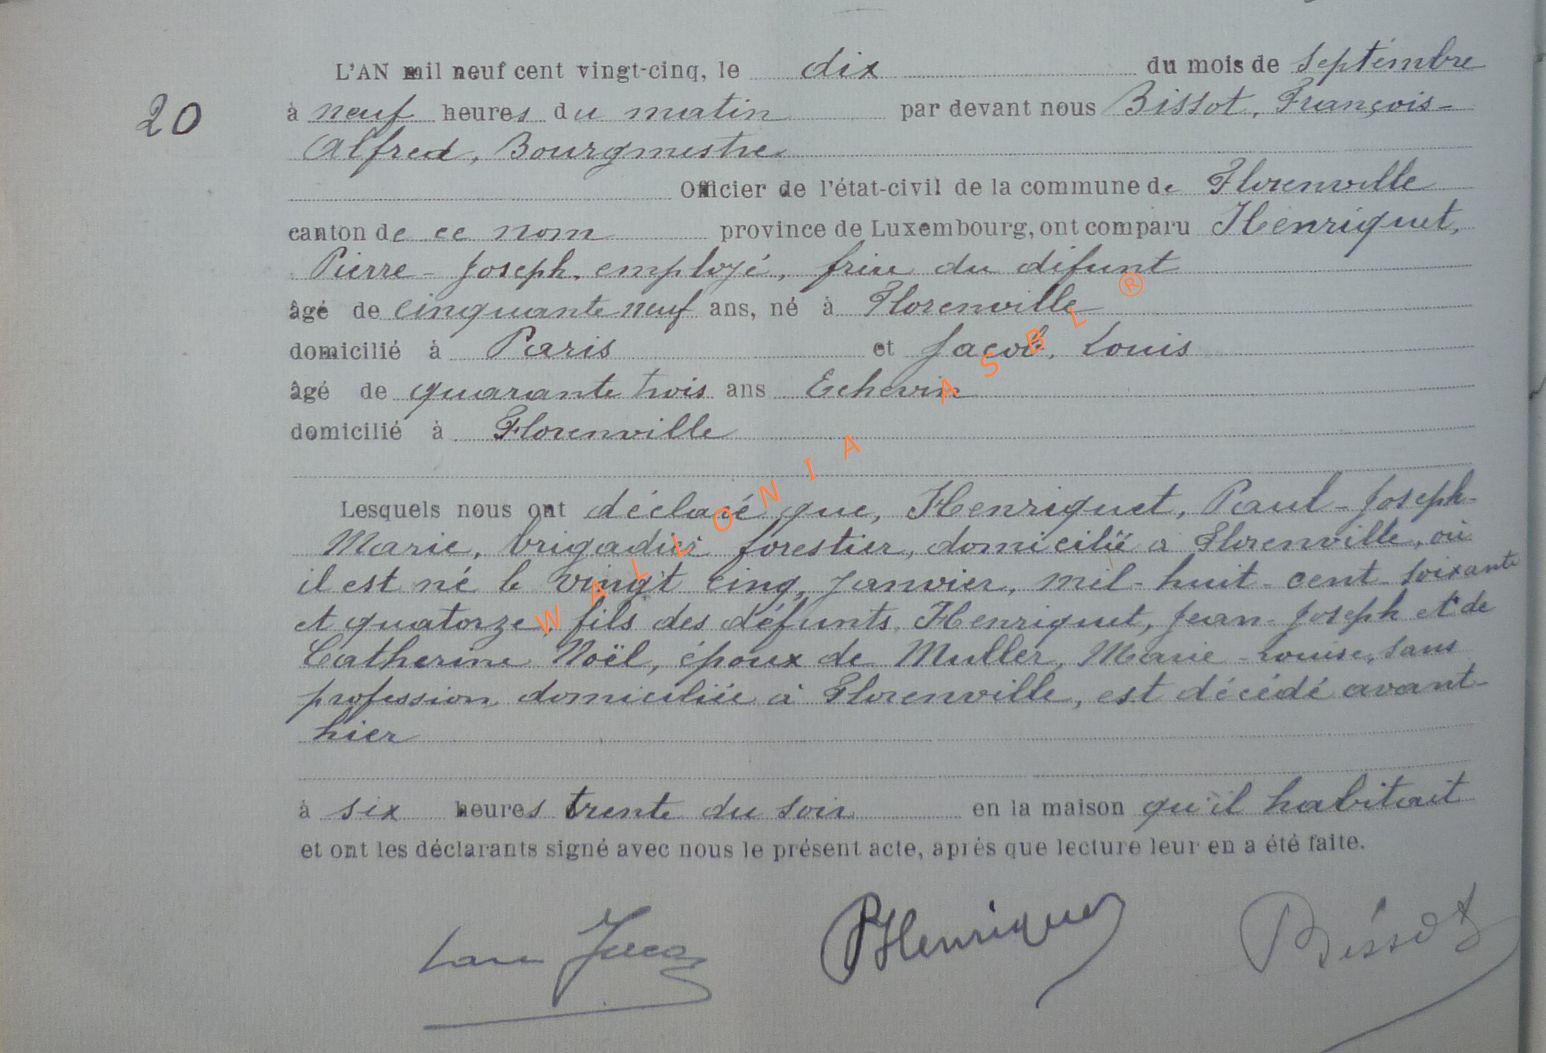 L'AN mil neuf cent vingt-cinq, le dix du mois de Septembre
20
à neuf heures du matin par devant nous Bissot, François-
Alfred, Bourgmestre
Officier de l'état-civil de la commune de Florenville
canton de ce nom province de Luxembourg, ont comparu Henriquet,
Pierre-Joseph, employé, frère du défunt
âgé de cinquante neuf ans, né à Florenville
domicilié à Paris et Jacob, Louis
âgé de quarante trois ans Echevin
domicilié à Florenville
Lesquels nous ont déclaré que, Henriquet, Paul-Joseph-
Marie, brigadier forestier, domicilié à Florenville, où
il est né le vingt cinq Janvier, mil-huit-cent-soixante
et quatorze, fils des défunts, Henriquet, Jean-Joseph et de
Catherine Noël, époux de Muller, Marie-Louise, sans
profession domiciliée à Florenville, est décédé avant-
hier
à six heures trente du soir en la maison qu'il habitait
et ont les déclarants signé avec nous le présent acte, après que lecture leur en a été faite.
PHenriquet Bissot
WALLONIA ASBL ®